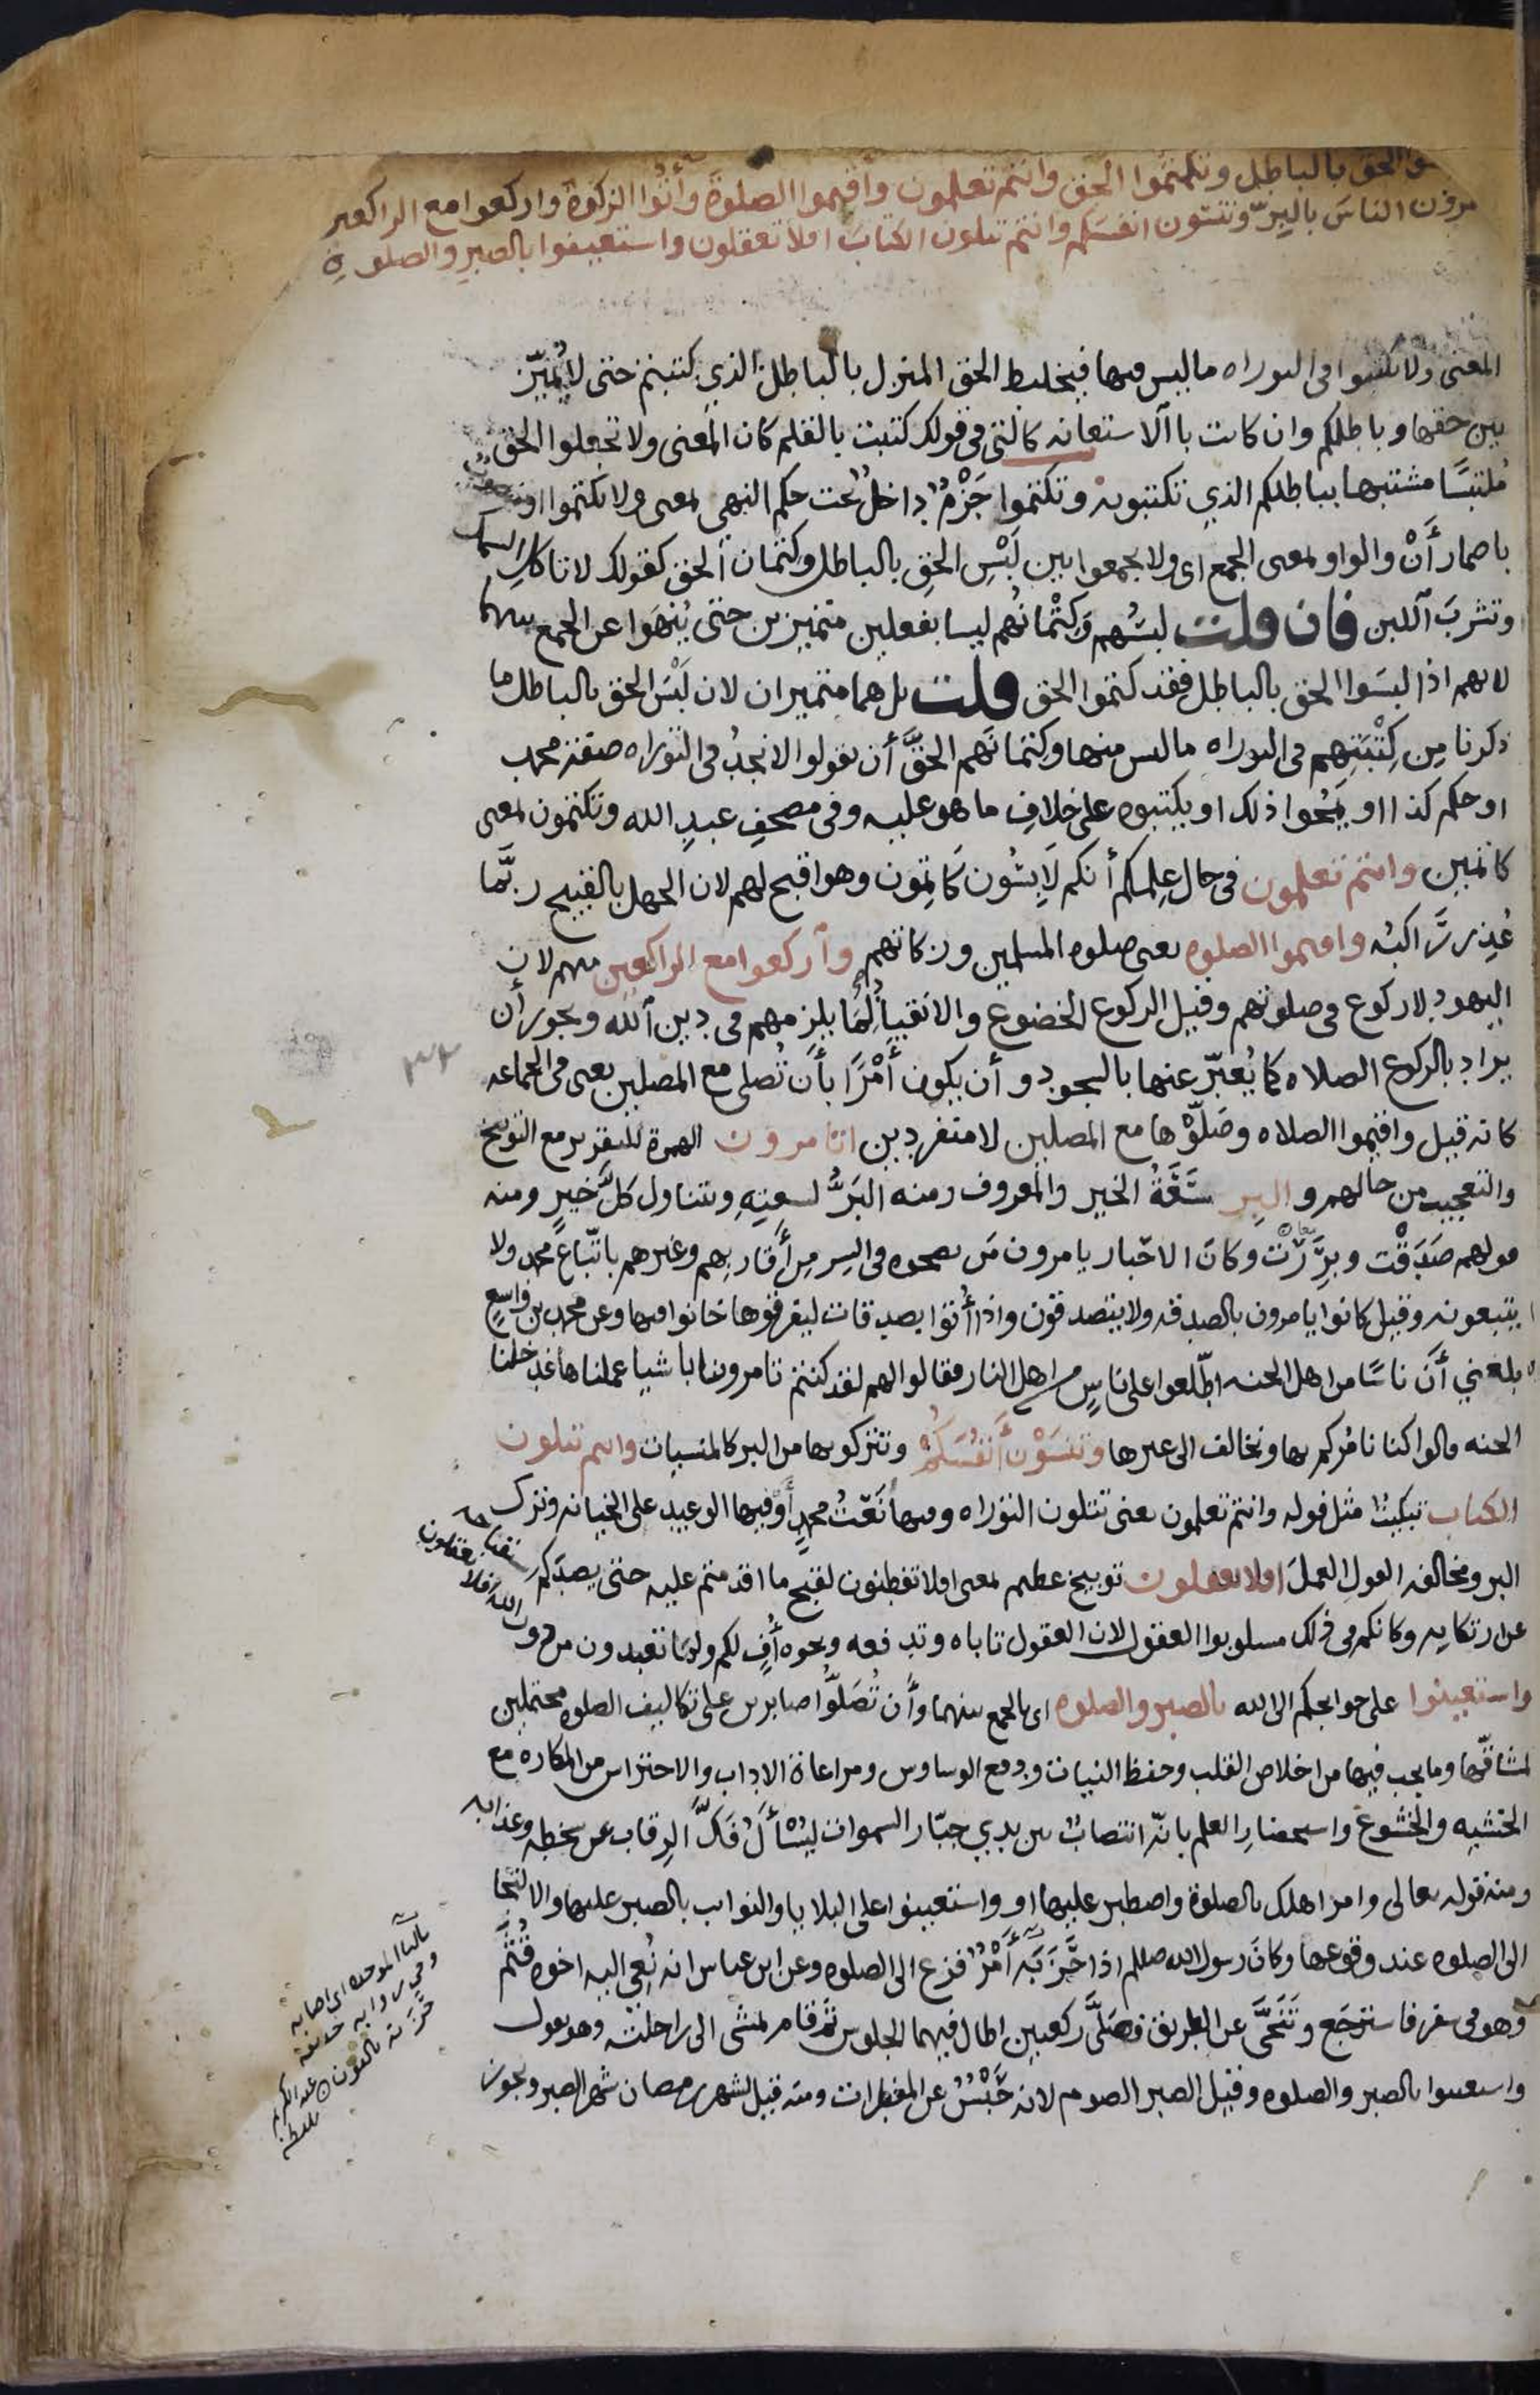 الحق بالباطل وتكتموا الحق وانتم تعلمون واقيموا الصلوة وأتوا الزكوة واركعوا مع الراكعين
مرون الناس بالبر وتنسون انفسكم وانتم تتلون الكتاب افلا تعقلون واستعينوا بالصبر والصلوة
المعنى ولا تكتبوا فى التوراه ما ليس فيها فيختلط الحق المنزل بالباطل الذي كتبتم حتى لا يُميّز
بين حقها وباطلكم وان كانت با الاستعانه كالتى فى قولك كتبت بالقلم كان المعنى ولا تجعلوا الحق
مُلتبسًا مشتبها بباطلكم الذي تكتبونه وتكتموا جَزْمٌ داخلٌ تحت حكم النهى بمعنى ولا تكتموا او
باضمار أَنْ والواو بمعنى الجمع اى ولا تجمعوا بين لَبْسِ الحق بالباطل وكتمان الحق كقولك لا تاكل السمك
وتشربَ اللبن فان قلت لبسُهم وكِتْمانُهم ليسا بفعلين متميزين حتى يُنهَوا عن الجمع بينهما
لانهم اذا لبسَوا الحق بالباطل فقد كتموا الحق قلت بل هما متميزان لان لَبْسَ الحق بالباطل ما
ذكرنا مِن كِتْبَتِهم فى التوراه ما ليس منها وكتمانَهم الحقَّ أن يقولوا لا نجدُ فى التوراه صفة محمد
او حكم كذا او يَمْحُوا ذلك او يكتبوه على خلافِ ما هو عليه وفى مصحفِ عبدِ الله وتكتمون بمعنى
كاتمين وانتم تعلمون فى حال عِلمكم أنكم لابِسُون كَاتِمون وهو اقبح لهم لان الجهل بالقبيح ربَّما
عُذِر رَاكبُه واقيموا الصلوه يعنى صلوه المسلمين وزكاتهم واركعوا مع الراكعين منهم لان
اليهود لا ركوع فى صلوتهم وقيل الركوع الخضوع والانقيادُ لِمَا يلزمهم فى دين الله ويجوز أن
يراد بالركوع الصلاه كما يُعبّر عنها بالسجود و أن يكون أَمْرًا بأَن تُصلى مع المصلين يعنى فى الجماعه
كانه قيل واقيموا الصلاه وصَلّوْها مع المصلين لا منفردين اتامرون الهمزة للتقرير مع التوبيخ
والتعجيب من حالهم و البر سَعَةُ الخير والمعروف ومنه البَرُّ لسعتِهِ ويتناول كلَّ خيرٍ ومنه
قولهم صَدَقْت وبرَِرْتَ وكانَ الاحبار يامرون مَن نصحوه فى السر مِن أَقارِبِهم وغيرهم باتّباع محمد ولا
يتبعونه وقيل كانوا يامرون بالصدقه ولا يتصدقون واذا أُتوا بصدقات ليفرقوها خانوا فيها وعن محمد بن واسعٍ
بلغني أَنّ ناسًا من اهل الجنه اطّلعوا على ناسٍ من اهل النار فقالوا لهم لقد كنتم تامروننا باشيا عملناها فدخلنا
الجنه قالوا كنا نامُركم بها ونخالف الى غيرها وتنسَوْن أنفُسَكُمْ وتتركونها من البر كالمنسيات وانتم تتلون
الكتاب تبكيتٌ مثل قوله وانتم تعلمون يعنى تتلون التوراه وفيها نَعْتُ محمدٍ أو فيها الوعيد على الخيانه وترك
البر ومخالفه القول العملَ افلا تعقلون توبيخ عظيم بمعنى افلا تفطنون لقبح ما اقدمتم عليه حتى يصدّكم
استقباحه
عن ارتكابه وكانكم فى ذلك مسلوبوا العقول لان العقول تاباه وتدفعه ونحوه أُفٍ لكم ولما تعبدون من دون
الله افلا تعقلون
واستعينوا على حوائجكم الى الله بالصبر والصلوه اى بالجمع بينهما وأَن تُصَلُّوا صابرين على تكاليف الصلوه محتملين
لمشاقّها وما يجب فيها من اخلاص القلب وحفظ النيات ودفع الوساوس ومراعاة الاداب والاحتراس من المكاره مع
الخشيه والخشوع واستحضارِ العلم بانّه انتصابٌ بين يدي جبّار السموات ليُسْأَلَ فَكَّ الرقاب عن سخطه وعذابه
ومنه قوله تعالى وامر اهلك بالصلوة واصطبر عليها او واستعينوا على البلايا والنوايب بالصبر عليها والالتجا
الى الصلوه عند وقوعها وكانَ رسول الله صللم اذا حَزَبَه أَمْرٌ فزع الى الصلوه وعن ابن عباس انه نُعِى اليه اخوه قُثَمُ
وهو فى سفر فاسترجَع وتَنَحَّى عن الطريق فصَلَّى ركعتين اطال فيهما الجلوس ثم قام يمشى الى راحلته وهو يقول
واستعينوا بالصبر والصلوه وقيل الصبر الصوم لانه حَبْسٌ عن المفطرات ومنه قيل لشهر رمضان شهر الصبر ويجوز
بالبا الموحده اى اصابه
وفى روايه
حزنه بالنون
٣٢